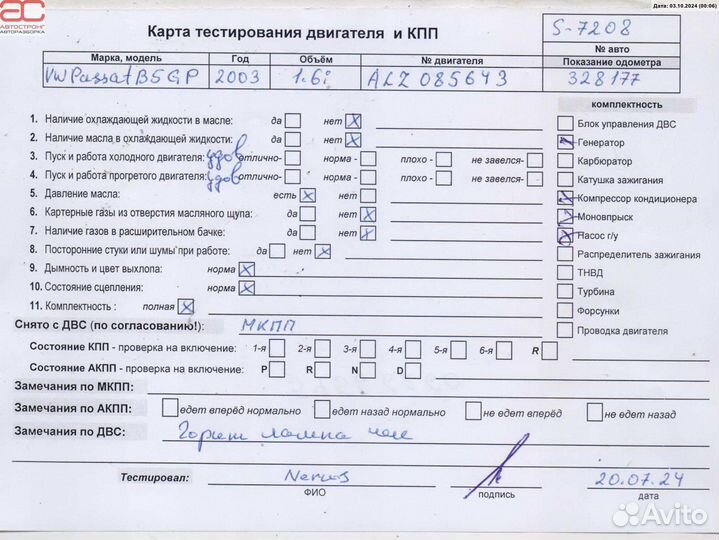 Дата: 03.10.2024 (00:06)
ас
АВТОСТРОНГ
АВТОРАЗБОРКА
Карта тестирования двигателя и КПП
S-7208
№ авто
Марка, модель Год Объём № двигателя Показание одометра
VW Passat B5 GP 2003 1.6i ALZ 085643 328177
комплектность
1. Наличие охлаждающей жидкости в масле: да нет Блок управления ДВС
2. Наличие масла в охлаждающей жидкости: да нет Генератор
3. Пуск и работа холодного двигателя: удов отлично- норма - плохо - не завелся- Карбюратор
4. Пуск и работа прогретого двигателя: удов отлично- норма - плохо - не завелся- Катушка зажигания
5. Давление масла: есть нет Компрессор кондиционера
6. Картерные газы из отверстия масляного щупа: да нет Моновпрыск
7. Наличие газов в расширительном бачке: да нет Насос г/у
8. Посторонние стуки или шумы при работе: да нет Распределитель зажигания
9. Дымность и цвет выхлопа: норма ТНВД
10. Состояние сцепления: норма Турбина
11. Комплектность : полная Форсунки
Снято с ДВС (по согласованию!): МКПП Проводка двигателя
Состояние КПП - проверка на включение: 1-я 2-я 3-я 4-я 5-я 6-я R
Состояние АКПП - проверка на включение: P R N D
Замечания по МКПП:
Замечания по АКПП: едет вперёд нормально едет назад нормально не едет вперёд не едет назад
Замечания по ДВС: Горит лампа чек
Тестировал: 20.07.24
ФИО подпись дата
Avito